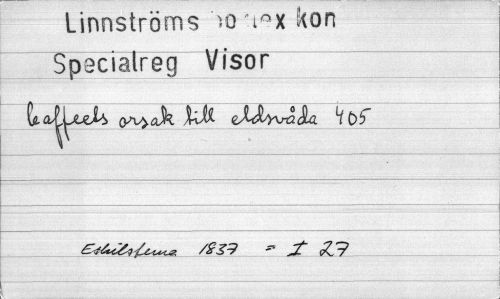 Linnströms bo lex kon
Specialreg Visor
Caffeets orsak till eldsvåda 405
Eskilstuna 1837 = I 27